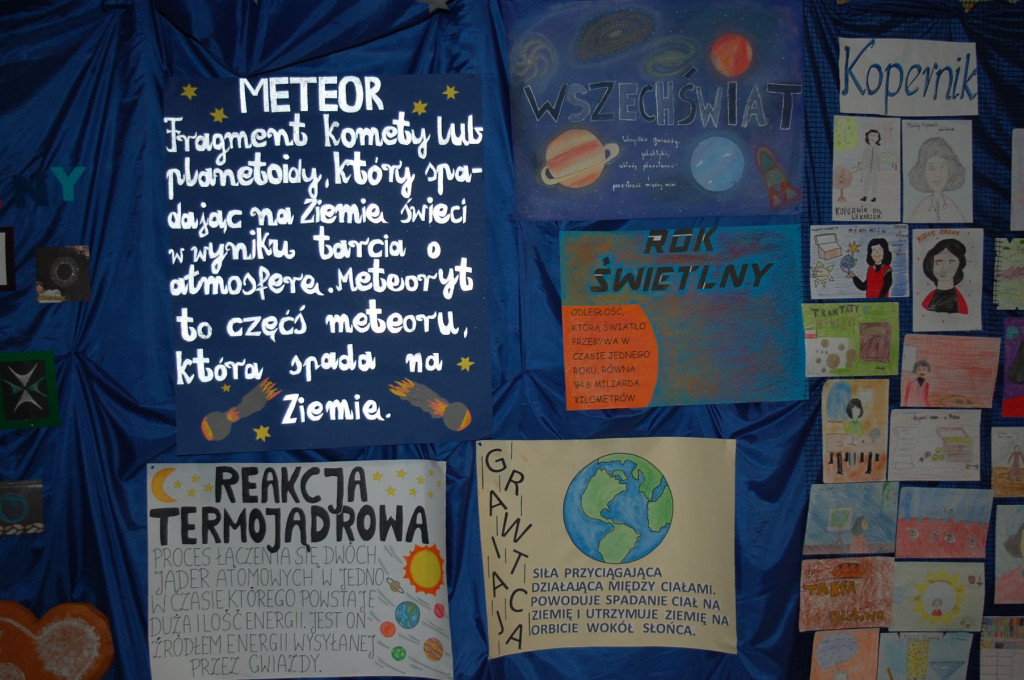 METEOR
Fragment komety lub
planetoidy, który spa-
dając na Ziemię świeci
w wyniku tarcia o
atmosferę. Meteoryt
to częćś meteoru,
która spada na
Ziemię.
WSZECHŚWIAT
Wszystkie gwiazdy,
galaktyki,
układy planetarne
i
przestrzeń między nimi
ROK
ŚWIETLNY
ODLEGŁOŚĆ,
KTÓRĄ ŚWIATŁO
PRZEBYWA W
CZASIE JEDNEGO
ROKU, RÓWNA
94.6 MILIARDA
KILOMETRÓW
REAKCJA
TERMOJĄDROWA
PROCES ŁĄCZENIA SIĘ DWÓCH
JĄDER ATOMOWYCH W JEDNO
W CZASIE KTÓREGO POWSTAJE
DUŻA ILOŚĆ ENERGII. JEST ON
ŹRÓDŁEM ENERGII WYSYŁANEJ
PRZEZ GWIAZDY.
GRAWITACJA
GRAWITACJA
SIŁA PRZYCIĄGAJĄCA
DZIAŁAJĄCA MIĘDZY CIAŁAMI.
POWODUJE SPADANIE CIAŁ NA
ZIEMIĘ I UTRZYMUJE ZIEMIĘ NA
ORBICIE WOKÓŁ SŁOŃCA.
Kopernik
KOPERNIK BYŁ
LEKARZEM
TRAKTATY
NY